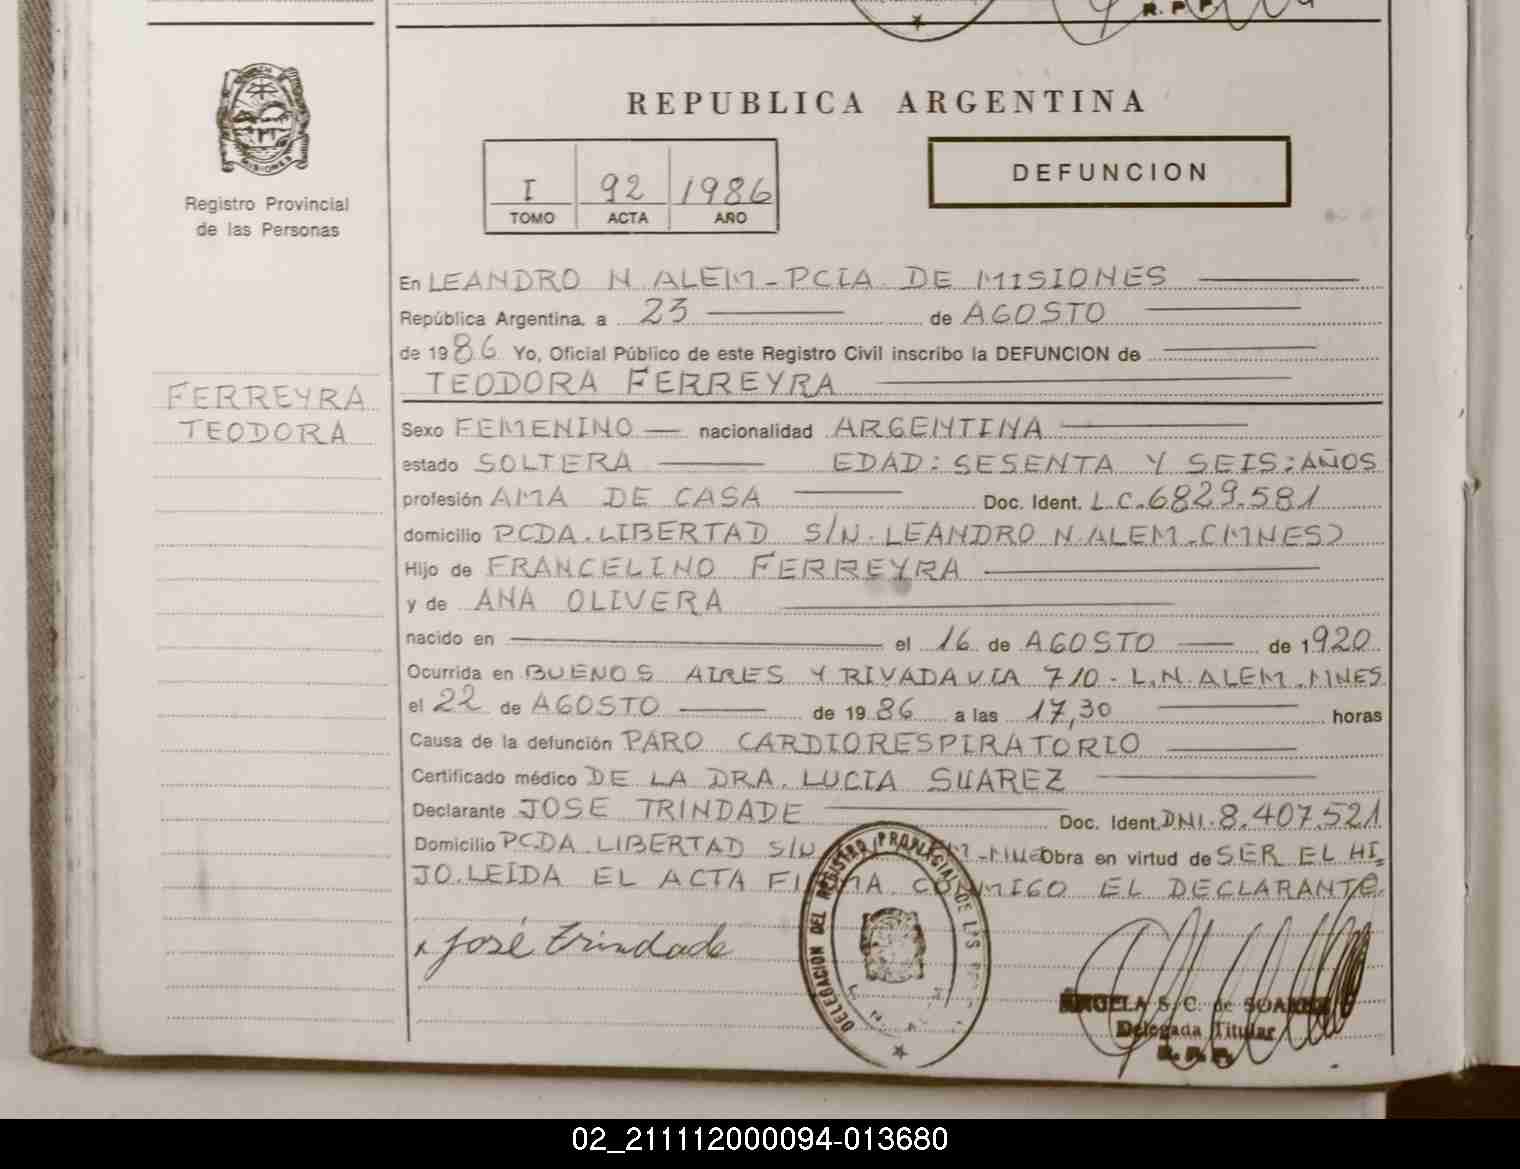 R. P. P.
MISIONES
Registro Provincial
de las Personas
REPUBLICA ARGENTINA
I 92 1986
TOMO ACTA AÑO
DEFUNCION
FERREYRA
TEODORA
En LEANDRO N. ALEM - PCIA. DE MISIONES
República Argentina, a 23 de AGOSTO
de 1986 Yo, Oficial Público de este Registro Civil inscribo la DEFUNCION de
TEODORA FERREYRA
Sexo FEMENINO nacionalidad ARGENTINA
estado SOLTERA EDAD: SESENTA Y SEIS: AÑOS
profesión AMA DE CASA Doc. Ident. L.C. 6829.581
domicilio PCDA. LIBERTAD S/N. LEANDRO N. ALEM. (MNES)
Hijo de FRANCELINO FERREYRA
y de ANA OLIVERA
nacido en el 16 de AGOSTO de 1920
Ocurrida en BUENOS AIRES Y RIVADAVIA 710 - L.N. ALEM. MNES
el 22 de AGOSTO de 1986 a las 17,30 horas
Causa de la defunción PARO CARDIORESPIRATORIO
Certificado médico DE LA DRA. LUCIA SUAREZ
Declarante JOSE TRINDADE Doc. Ident. DNI. 8.407.521
Domicilio PCDA LIBERTAD S/N Obra en virtud de SER EL HI_
JO. LEIDA EL ACTA FIRMA CONMIGO EL DECLARANTE.
x José Trindade
DELEGACION DEL REGISTRO PROVINCIAL DE LAS
ANGELA S. C. de SUAREZ
Delegada Titular
R. P. P.
02_211112000094-013680